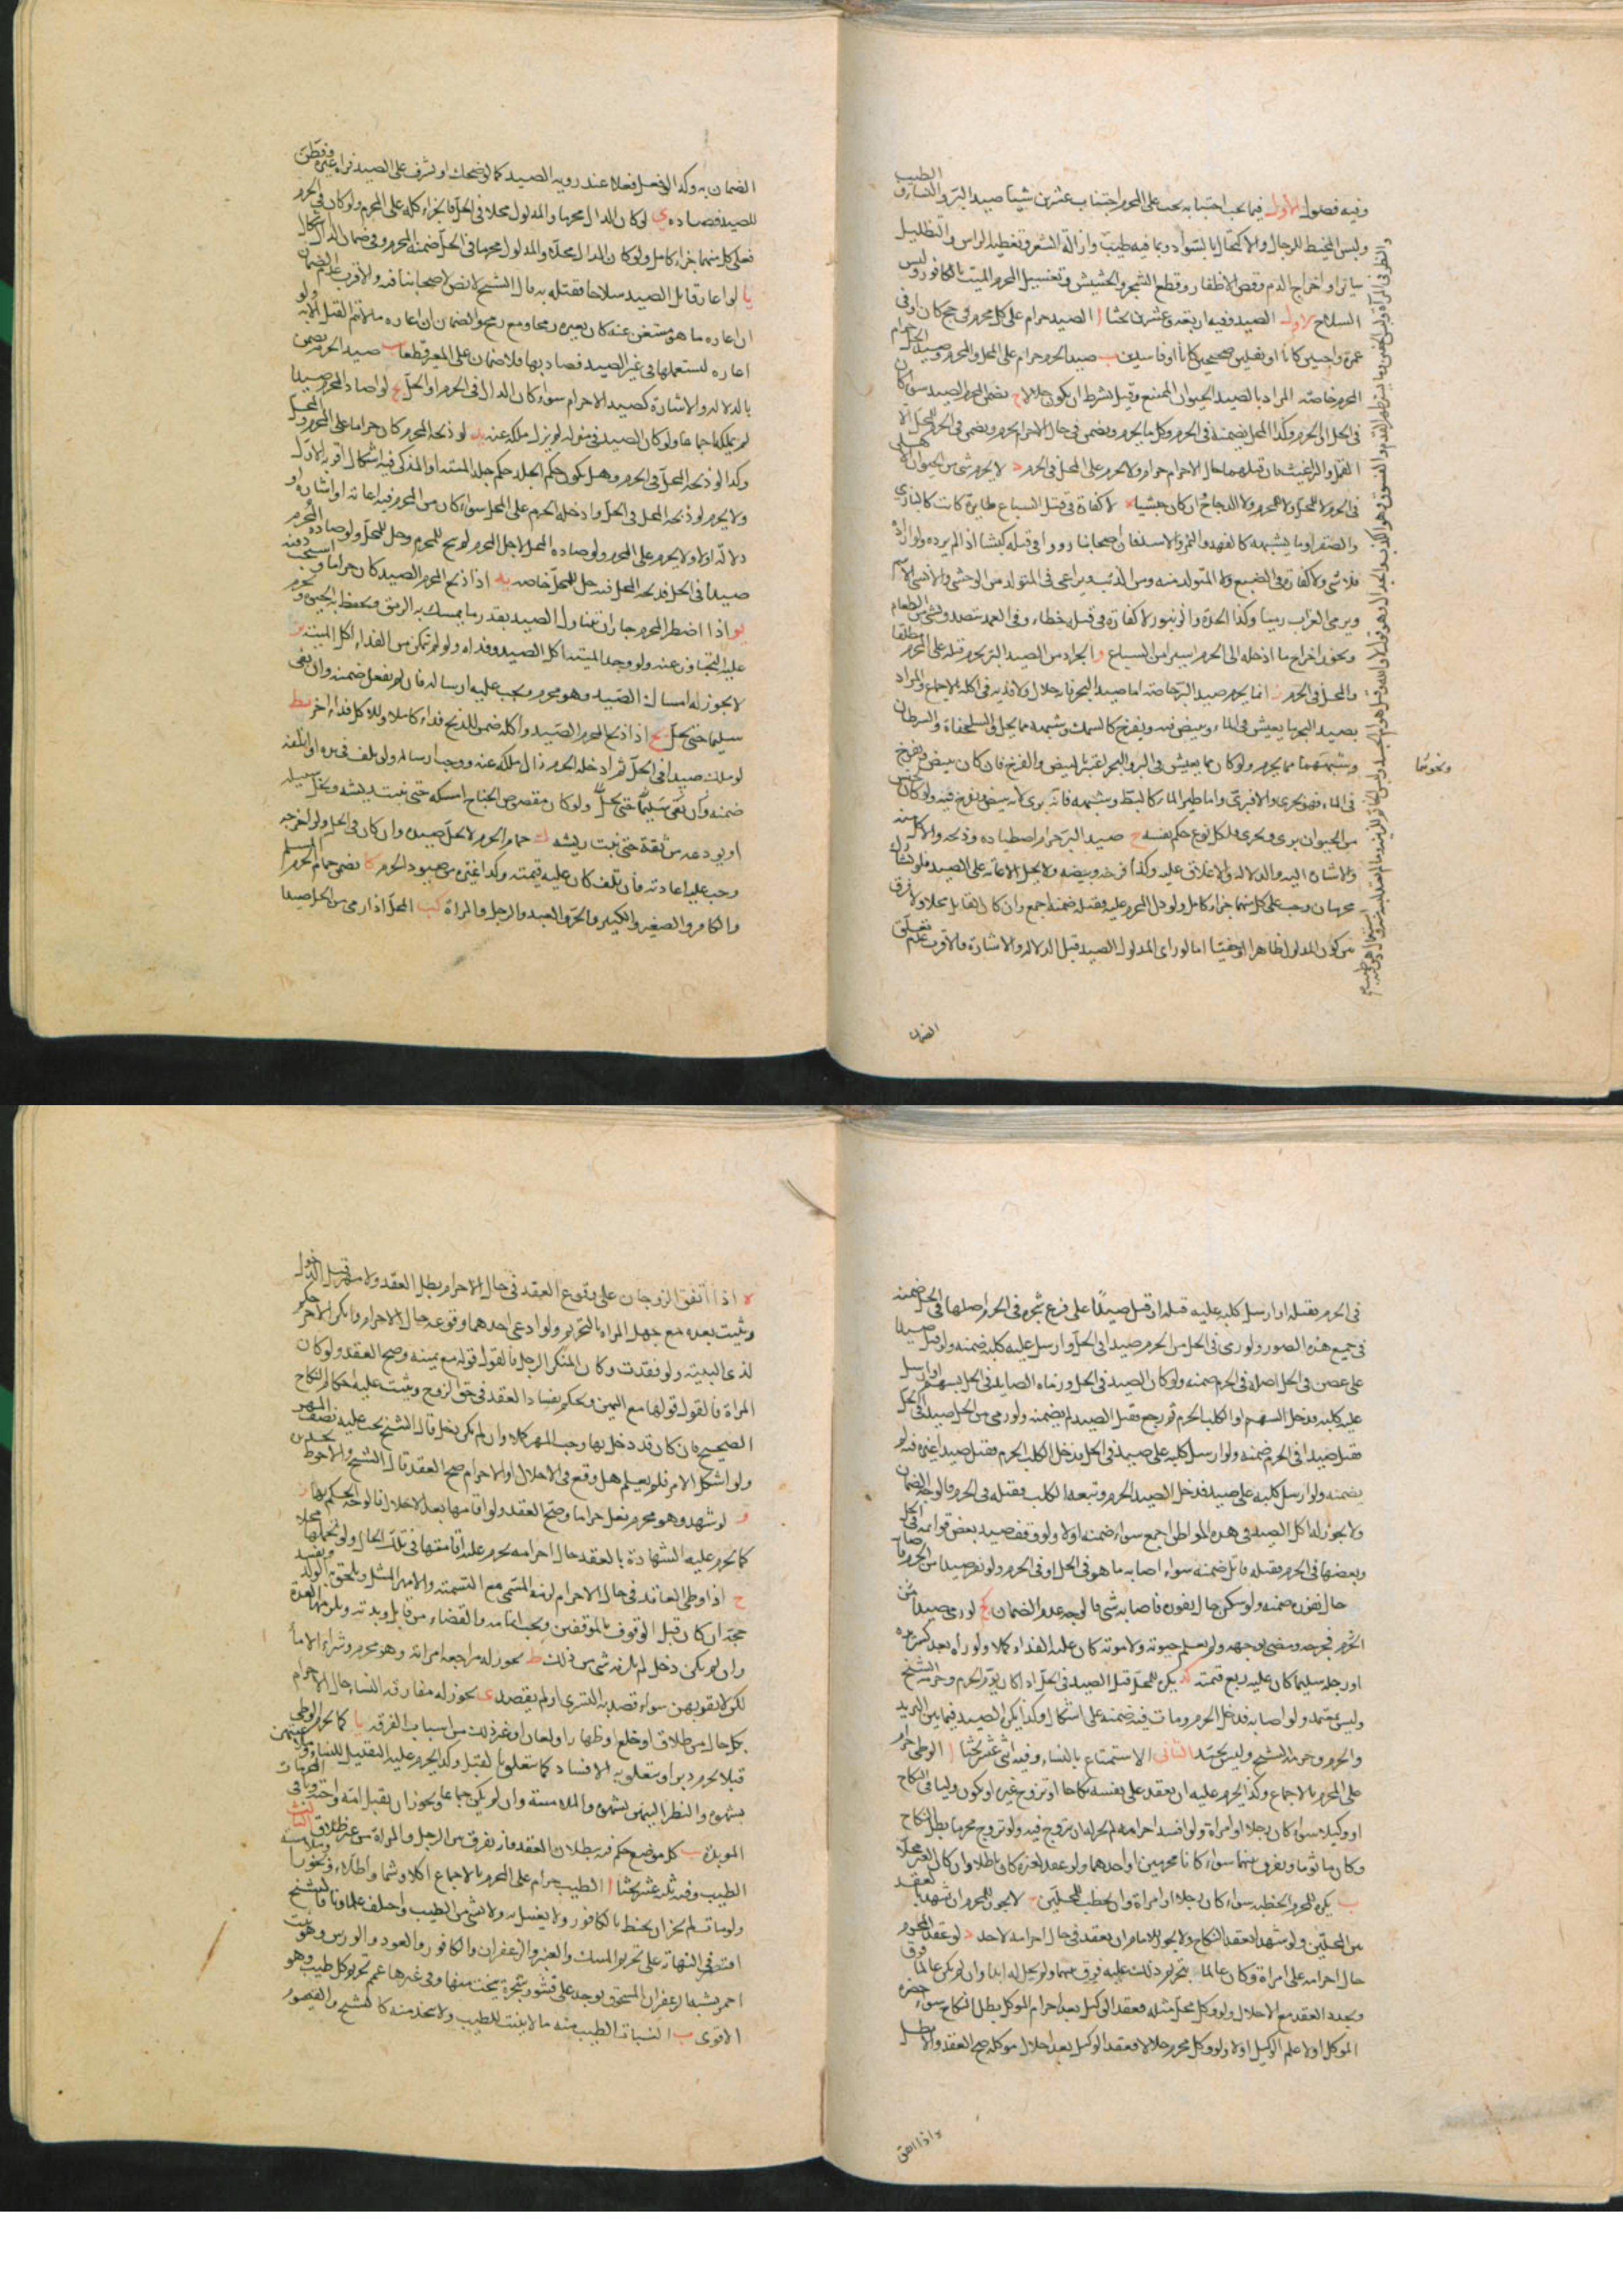 وفيه فصول الأول فيما يجب اجتنابه يجب على المحرم اجتناب عشرين شيئا صيد البر والنساء والطيب
ولبس المخيط للرجال والاكتحال بالسواد وبما فيه طيب وازالة الشعر وتغطية الراس والتظليل
سائرا واخراج الدم وقص الاظفار وقطع الشجر والحشيش وتغسيل المحرم الميت بالكافور ولبس
السلاح الاول الصيد وفيه اربعة وعشرون بحثا ا الصيد حرام على كل محرم في حج كان او في
عمرة واجبين كانا او نفلين صحيحين كانا او فاسدين ب صيد الحرم حرام على المحل والمحرم وصيد الحل حرام
المحرم خاصة المراد بالصيد الحيوان الممتنع وقيل بشرط ان يكون حلالا ج يضمن المحرم الصيد سواء كان
في الحل او الحرم وكذا المحل يضمنه في الحرم وكل ما يحرم ويضمن في حال الاحرام يحرم ويضمن في الحرم للمحل الا
القمل والبراغيث فان قتلهما حال الاحرام حرام ولا يحرم على المحل في الحرم د لا يحرم شيء من الحيوان الاهلي
في الحرم لا للمحل ولا للمحرم ولا الدجاج ان كان حبشيا ه لا كفارة في قتل السباع طايرة كانت كالبازي
والصقر او ماشية كالفهد والنمر الا الاسد فان اصحابنا رووا في قتله كبشا اذا لم يرده ولو اراده
فلا شيء ولا كفارة في الضبع ولا المتولد منه ومن الذئب ويراعى في المتولد من الوحشي والانسي الاسم
ويرمي الغراب رميا وكذا الحداة والزنبور لا كفارة في قتله خطاء وفي العمد يتصدق بشيء من الطعام
ويجوز اخراج ما ادخله الى الحرم اسيرا من السباع و الجراد من الصيد البري يحرم قتله على المحرم مطلقا
والمحل في الحرم ز انما يحرم صيد البر خاصة اما صيد البحر فانه حلال ولا فدية في اكله بالاجماع والمراد
بصيد البحر ما يعيش في الماء ويبيض فيه ويفرخ كالسمك وشبهه مما يحل والسلحفاة والسرطان
وشبههما مما يحرم ولو كان مما يعيش في البر والبحر اعتبر بالبيض والفرخ فان كان يبيض ويفرخ
في الماء فهو بحري والا فبري واما طير الماء كالبط وشبهه فانه بري لانه يبيض ويفرخ فيه ولو كان جنس
من الحيوان بري وبحري فلكل نوع حكم نفسه ح صيد البر حرام اصطياده وذبحه والاكل منه
والاشارة اليه والدلالة والاغلاق عليه وكذا فرخه وبيضه ولا يحل الاعانة على الصيد فلو تشارك
محرمان وجب على كل منهما جزاء كامل ولو دل المحرم عليه فقتله ضمنه اجمع وان كان القاتل محلا ولا فرق
من كون المدلول ظاهرا او خفيا اما لو راى المدلول الصيد قبل الدلالة والاشارة فالاقرب عدم تعلق
ونحوهما
الضمان
الضمان به وكذا لو فعل فعلا عند رويه الصيد كما لو ضحك او تشرف على الصيد فراه غيره وفطن
للصيد فصاده ي لو كان الدال محرما والمدلول محلا في الحل فالجزاء كله على المحرم ولو كان في الحرم
فعلى كل منهما جزاء كامل ولو كان الدال محلا والمدلول محرما في الحل ضمنه المحرم وفي ضمان الدال اشكال
يا لو اعار قاتل الصيد سلاحا فقتله به قال الشيخ لا نص لاصحابنا فيه والاقرب عدم الضمان
ان اعاره ما هو مستغن عنه كان يعيره رمحا ومع رمح والضمان ان اعاره ما لا يتم القتل الا به ولو
اعاره ليستعملها في غير الصيد فصاد بها فلا ضمان على المعير قطعا يب صيد الحرم يضمن
بالدلالة والاشارة كصيد الاحرام سواء كان الدال في الحرم او الحل يج لو اصاد المحرم صيدا
لم يملكه اجماعا ولو كان الصيد في منزله لم يزل ملكه عنه يد لو ذبحه المحرم كان حراما على المحرم والمحل
وكذا لو ذبحه المحل في الحرم وهل يكون حكم الجلد حكم جلد الميتة او المذكى فيه اشكال اقربه الاول
ولا يحرم لو ذبحه المحل في الحل وادخله الحرم على المحل سواء كان من المحرم فيه اعانة او اشارة او
دلالة اولا ولا يحرم على المحرم ولو صاده المحل لاجل المحرم لم يبح للمحرم وحل للمحل ولو صاد المحرم
صيدا في الحل فذبحه المحل فيه حل للمحل خاصة يه اذا ذبح المحرم الصيد كان حراما ويستحب دفنه
يو اذا اضطر المحرم جاز ان يتناول الصيد بقدر ما يمسك به الرمق ويحفظ به الحيوة ويحرم
عليه التجاوز عنه ولو وجد الميتة اكل الصيد وفداه ولو لم يتمكن من الفداء اكل الميتة يز
لا يجوز له امساك الصيد وهو محرم ويجب عليه ارساله فان لم يفعل ضمنه وان بقي
سليما حتى يحل يح اذا ذبح المحرم الصيد واكله ضمن للذبح فداء كاملا وللاكل فداء اخر يط
لو ملك صيدا في الحل ثم ادخله الحرم زال ملكه عنه ووجب ارساله ولو تلف في يده او اتلفه
ضمنه وان بقي سليما حتى يحل ولو كان مقصوص الجناح امسكه حتى ينبت ريشه ويخلى سبيله
او يودعه من ثقة حتى ينبت ريشه ك حمام الحرم لا يحل صيده وان كان في الحل ولو اخرجه
وجب عليه اعادته فان تلف كان عليه قيمته وكذا غيره من صيود الحرم كا يضمن حمام الحرم المسلم
والكافر والصغير والكبير والحر والعبد والرجل والمراة كب المحل اذا رمى من الحل صيدا
في الحرم فقتله او ارسل كلبه عليه فقتله او قتل صيدا على فرع شجرة في الحرم اصلها في الحل ضمنه
في جميع هذه الصور ولو رمى في الحل من الحرم صيدا في الحل او ارسل عليه كلبه ضمنه ولو قتل صيدا
على غصن في الحل اصله في الحرم ضمنه ولو كان الصيد في الحل ورماه الصايد في الحل بسهم او ارسل
عليه كلبه فدخل السهم او الكلب الحرم ثم رجع فقتل الصيد لم يضمنه ولو رمى من الحل صيدا في الحل
فقتل صيدا في الحرم ضمنه ولو ارسل كلبه على صيد في الحل فدخل الكلب الحرم فقتل صيدا غيره فيه لم
يضمنه ولو ارسل كلبه على صيد فدخل الصيد الحرم وتبعه الكلب فقتله في الحرم فالوجه الضمان
ولا يجوز له اكل الصيد في هذه المواطن اجمع سواء ضمنه اولا ولو وقف صيد بعض قوايمه في الحل
وبعضها في الحرم فقتله قاتل ضمنه سواء اصابه ما هو في الحل او في الحرم ولو نفر صيدا من الحرم فاصابه
حال نفوره ضمنه ولو سكن حال نفوره فاصابه شيء فالوجه عدم الضمان كج لو رمى صيدا من
الحرم فجرحه ومضى لوجهه ولم يعلم حيوته ولا موته كان عليه الفداء كملا ولو راه بعد كسر يده
او رجله سليما كان عليه ربع قيمته كد يكره للمحل قتل الصيد في الحل اذا كان يؤم الحرم وحرمه الشيخ
وليس بمعتمد ولو اصابه فدخل الحرم ومات فيه ضمنه على اشكال وكذا يكره الصيد فيما بين البريد
والحرم وحرمه الشيخ وليس بجيد الثاني الاستمتاع بالنساء وفيه اثنا عشر بحثا ا الوطي حرام
على المحرم بالاجماع وكذا يحرم عليه ان يعقد على نفسه نكاحا او يزوج غيره او يكون وليا في النكاح
او وكيلا سواء كان رجلا او امراة ولو افسد احرامه لم يجز له ان يتزوج فيه ولو تزوج محرما بطل النكاح
وكان ماثوما ويفرق بينهما سواء كانا محرمين او احدهما ولو عقد لغيره كان باطلا وان كان الغير محلا
ب يكره للمحرم الخطبة سواء كان رجلا او امراة وان خطب للمحلين ج لا يجوز للمحرم ان يشهد بالعقد
من المحلين ولو شهد انعقد النكاح ولا يجوز للامام ان يعقد في حال احرامه لاحد د لو عقد المحرم
حال احرامه على امراة وكان عالما بتحريم ذلك عليه فرق بينهما ولم يحل له ابدا وان لم يكن عالما فرق
ويجدد العقد مع الاحلال ولو وكل محل مثله فعقد الوكيل بعد احرام الموكل بطل النكاح سواء حضره
الموكل اولا علم الوكيل اولا ولو وكل محرم حلالا فعقد الوكيل بعد احلال موكله صح العقد والا بطل
ه اذا اتفق
ه اذا اتفق الزوجان على وقوع العقد في حال الاحرام بطل العقد ولا مهر قبل الدخول
ويثبت بعده مع جهل المراة بالتحريم ولو ادعى احدهما وقوعه حال الاحرام وانكر الاخر حكم
لذي البينة ولو فقدت وكان المنكر الرجل فالقول قوله مع يمينه وصح العقد ولو كان
المراة فالقول قولها مع اليمين ويحكم بفساد العقد في حق الزوج ويثبت عليه احكام النكاح
الصحيح فان كان قد دخل بها وجب المهر كملا وان لم يكن دخل قال الشيخ يجب عليه نصف المهر
ولو اشكل الامر فلم يعلم هل وقع في الاحلال او الاحرام صح العقد قال الشيخ والاحوط تجديده
و لو شهد وهو محرم فعل حراما وصح العقد ولو اقامها بعد الاحلال فالوجه الحكم بها ز
كما يحرم عليه الشهادة بالعقد حال احرامه يحرم عليه اقامتها في تلك الحال ولو تحملها محلا
ح اذا وطي العاقد في حال الاحرام لزمه المسمى مع التسمية والا مهر المثل ويلحق به الولد ويفسد
حجه ان كان قبل الوقوف بالموقفين ويجب اتمامه والقضاء من قابل وبدنة ويلزمها العدة
وان لم يكن دخل لم يلزمه شيء من ذلك ط يجوز له مراجعة امراته وهو محرم وشراء الاماء
لكن لا يقربهن سواء قصد به التسري او لم يقصد ي يجوز له مفارقة النساء حال الاحرام
بكل حال من طلاق او خلع او ظهار او لعان او غير ذلك من اسباب الفرقة يا كما يحرم الوطي
قبلا يحرم دبرا ويتعلق به الافساد كما يتعلق بالقبل وكذا يحرم عليه التقبيل للنساء وملاعبتهن
بشهوة والنظر اليهن بشهوة والملامسة وان لم يكن جماعا ويجوز ان يقبل امه واخته وباقي المحرمات
الموبدة يب كل موضع حكم فيه ببطلان العقد فانه يفرق من الرجل والمراة من غير طلاق الثالث
الطيب وفيه ثلثة عشر بحثا ا الطيب حرام على المحرم بالاجماع اكلا وشما واطلاء وملامسة ونحوها
ولو مات لم يجز ان يحنط بالكافور ولا يغسل به ولا بشيء من الطيب واختلف علماونا فالشيخ
اقتصر في النهاية على تحريم المسك والعنبر والزعفران والكافور والعود والورس وهو نبت
احمر يشبه الزعفران المسحوق يوجد على قشور شجرة ينحت منها وفي غيرها عمم تحريم كل طيب وهو
الاقوى ب النبات الطيب منه ما لا ينبت للطيب ولا يتخذ منه كالشيح والقيصوم